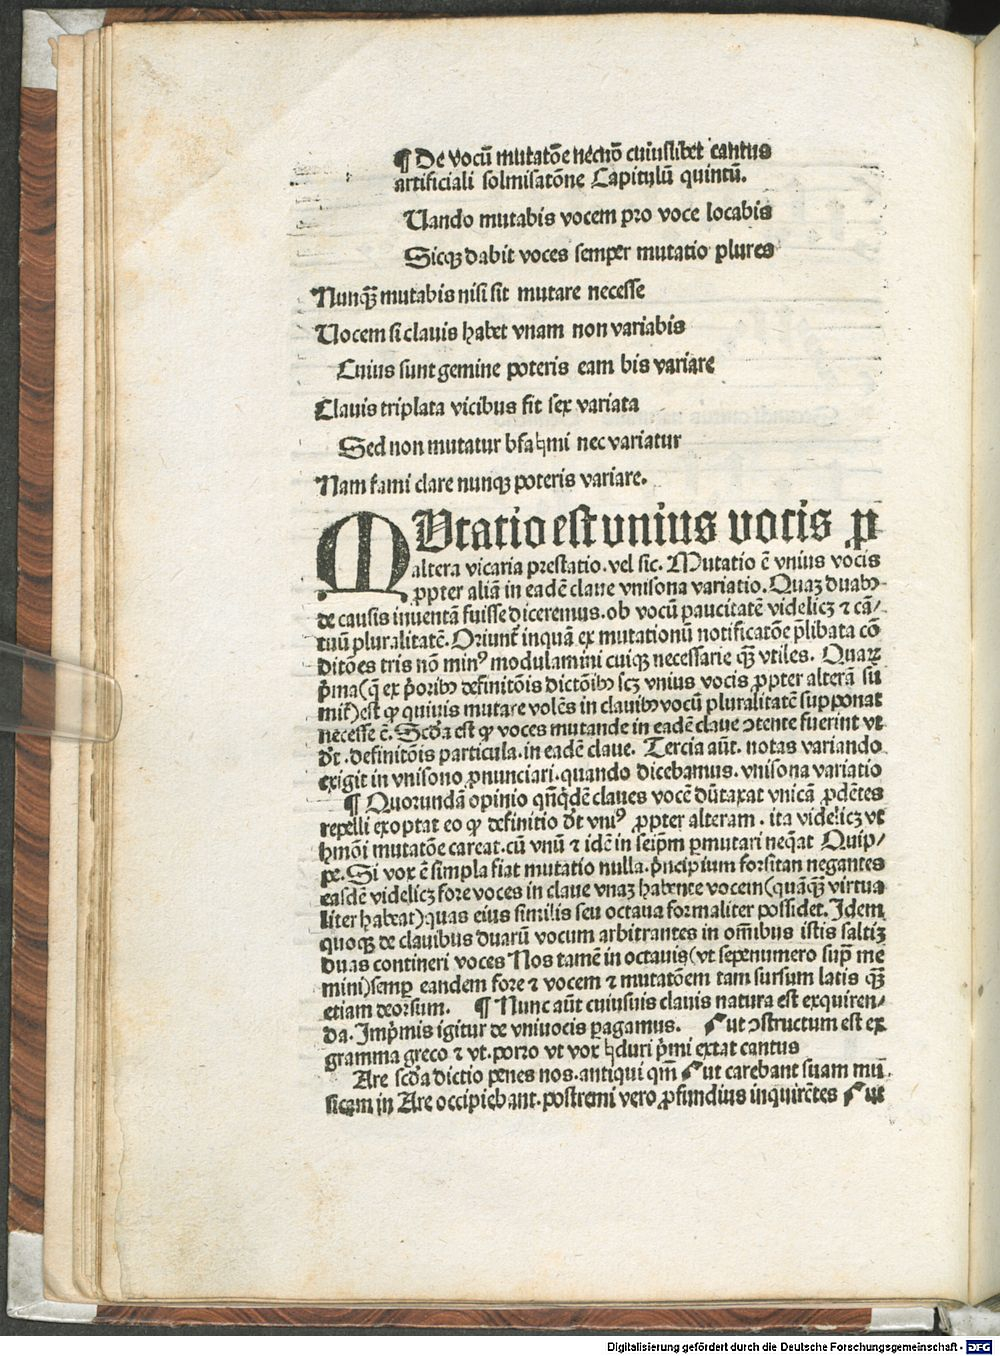 ¶ De vocū mutatōe necnō cuiuslibet cantus
artificiali solmisatōne Capitulū quintū.
Uando mutabis vocem pro voce locabis
Sicqʒ dabit voces semper mutatio plures
Nunqʒ̄ mutabis nisi sit mutare necesse
Vocem si clauis habet vnam non variabis
Cuius sunt gemine poteris eam bis variare
Clauis triplata vicibus fit sex variata
Sed non mutatur bfa♮mi nec variatur
Nam fami clare nunqʒ poteris variare.
MVtatio est vnius vocis ꝓ
altera vicaria prestatio. vel sic. Mutatio ē vnius vocis
ꝓpter aliā in eadē claue vnisona variatio. Quaʒ duabꝰ
de causis inuentā fuisse diceremus. ob vocū paucitatē videlicʒ ⁊ cā/
tuū pluralitatē. Oriunt̄ inquā ex mutationū notificatōe p̄libata cō
ditōes tris nō minꝰ modulamini cuiqʒ necessarie qʒ̄ vtiles. Quaꝝ
p̄ma (q̄ ex p̄oribꝰ definitōis dictōibꝰ scʒ vnius vocis ꝓpter alterā su
mit̄) est ꝙ quiuis mutare volēs in clauibꝰ vocū pluralitatē supponat
necesse ē. Scd̄a est ꝙ voces mutande in eadē claue ↄtente fuerint vt
dr̄. definitōis particula. in eadē claue. Tercia aūt. notas variando
exigit in vnisono ꝓnunciari. quando dicebamus. vnisona variatio
¶ Quorundā opinio qn̄qd̄e claues vocē dūtaxat vnicā ꝓdētes
repelli exoptat eo ꝙ definitio dr̄ vniꝰ ꝓpter alteram. ita videlicʒ vt
hmōi mutatōe careat. cū vnū ⁊ idē in seip̄m ꝑmutari neq̄at Quip/
pe. Si vox ē simpla fiat mutatio nulla. p̄ncipium forsitan negantes
easdē videlicʒ fore voces in claue vnaʒ habente vocem (quāqʒ̄ virtua
liter habeat) quas eius similis seu octaua formaliter possidet. Idem
quoqʒ de clauibus duarū vocum arbitrantes in om̄ibus istis saltiʒ
duas contineri voces Nos tamē in octauis (vt sepenumero sup̄ me
mini) semꝑ eandem fore ⁊ vocem ⁊ mutatōem tam sursum latis qʒ̄
etiam deorsum. ¶ Nunc aūt cuiusuis clauis natura est exquiren/
da. Imp̄mis igitur de vniuocis ꝑagamus. Γut ↄstructum est ex
gramma greco ⁊ vt. porro vt vox ♮duri p̄mi extat cantus
Are scd̄a dictio penes nos. antiqui qm̄ Γut carebant suam mu
sicam in Are occipiebant. postremi vero ꝓfundius inquirētes Γut
Digitalisierung gefördert durch die Deutsche Forschungsgemeinschaft - DFG